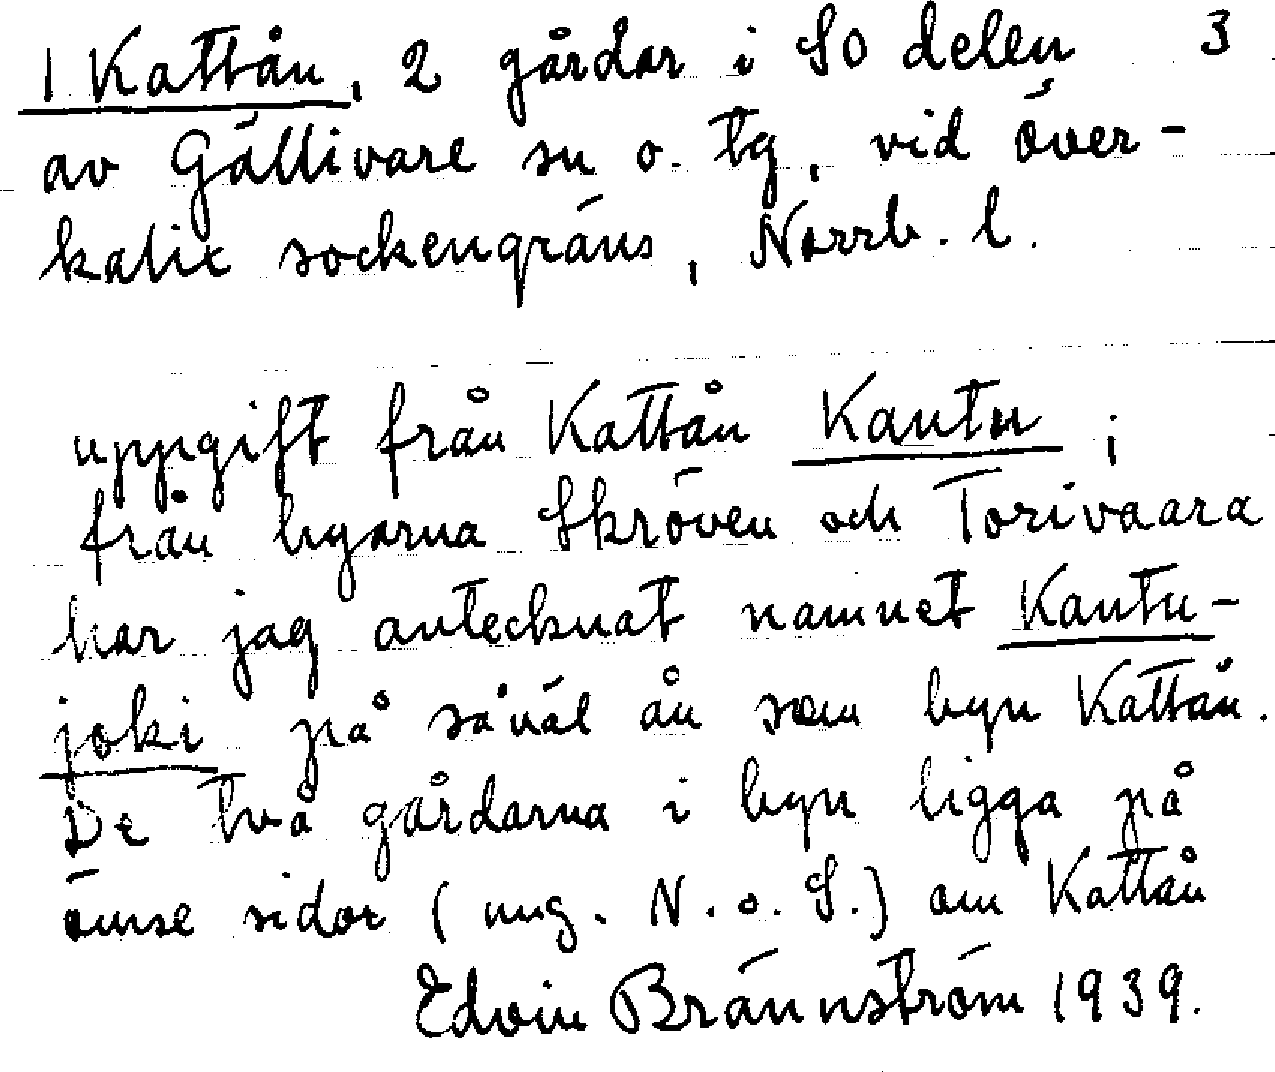 1 Kattån, 2 gårdar i SO delen 3
av Gällivare sn o. tg, vid Över-
kalix sockengräns, Norrb. l.
uppgift från Kattån Kantu ;
från byarna Skröven och Torivaara
har jag antecknat namnet Kantu-
joki på såväl ån som byn Kattån.
De två gårdarna i byn ligga på
ömse sidor (ung. N. o. S.) om Kattån
Edvin Brännström 1939.